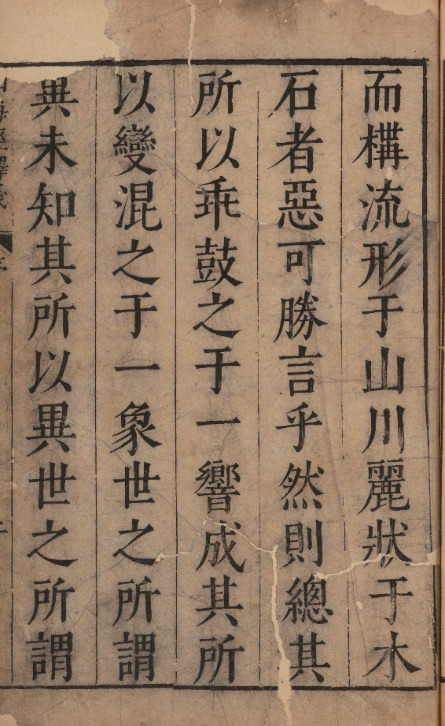 而構流形于山川麗狀于木
石者惡可勝言乎然則總其
所以乖鼓之于一響成其所
以變混之于一象世之所謂
異未知其所以異世之所謂
山海經釋義